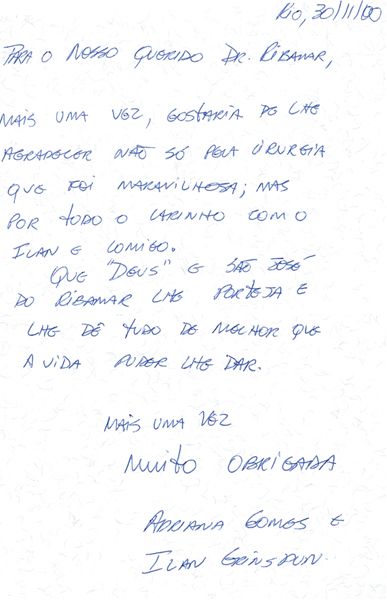 Rio, 30/11/00
PARA O NOSSO QUERIDO DR. RIBAMAR,
MAIS UMA VEZ, GOSTARIA DE LHE
AGRADECER NÃO SÓ PELA CIRURGIA
QUE FOI MARAVILHOSA; MAS
POR TODO O CARINHO COM O
ILAN E COMIGO.
QUE "DEUS" E SÃO JOSÉ
DO RIBAMAR LHE PORTEJA E
LHE DÊ TUDO DE MELHOR QUE
A VIDA PUDER LHE DAR.
MAIS UMA VEZ
MUITO OBRIGADA
ADRIANA GOMES E
ILAN GRINSPUN.